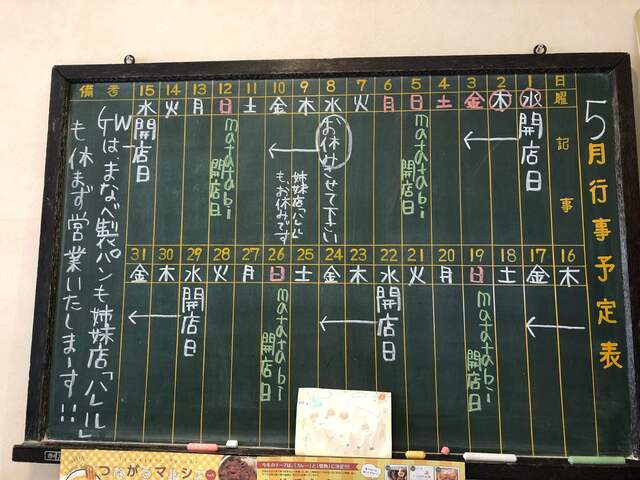 5月行事予定表
日曜 記事
1 水 開店日
2 木
3 金
4 土
5 日 matatabi 開店日
6 月
7 火
8 水 お休みさせて下さい
姉妹店ハレルも、お休みです
9 木
10 金
11 土
12 日 matatabi 開店日
13 月
14 火
15 水 開店日
16 木
17 金
18 土
19 日 matatabi 開店日
20 月
21 火
22 水 開店日
23 木
24 金
25 土
26 日 matatabi 開店日
27 月
28 火
29 水 開店日
30 木
31 金
備考
GWは、まなべ製パンも姉妹店「ハレル」
も休まず営業いたしまーす!!!
つながるマルシェ